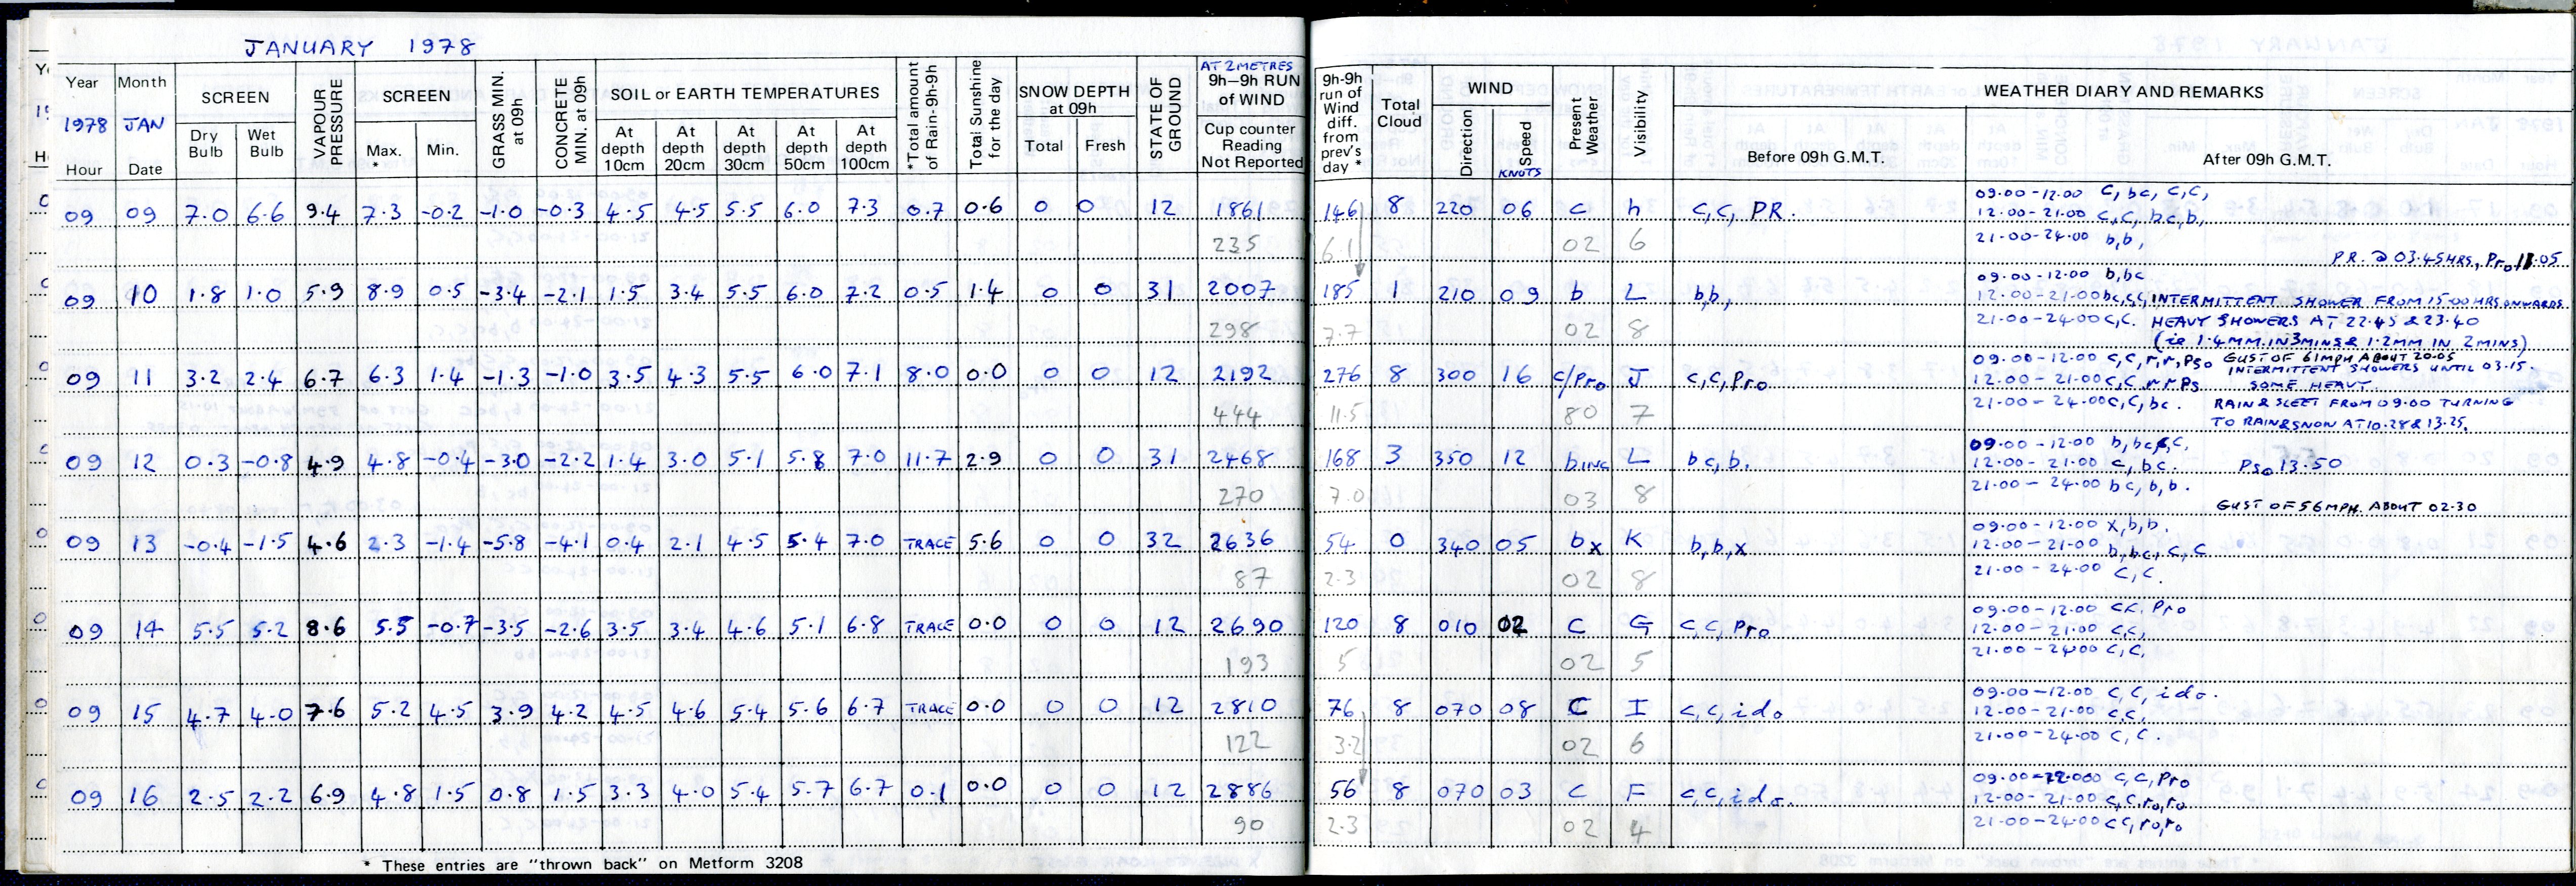 JANUARY 1978
Year Month SCREEN VAPOUR PRESSURE SCREEN GRASS MIN. at 09h CONCRETE MIN. at 09h SOIL or EARTH TEMPERATURES *Total amount of Rain-9h-9h Total Sunshine for the day SNOW DEPTH at 09h STATE OF GROUND AT 2 METRES 9h-9h RUN of WIND 9h-9h run of Wind diff. from prev's day* Total Cloud WIND Present Weather Visibility WEATHER DIARY AND REMARKS
1978 JAN Dry Bulb Wet Bulb Max. * Min. At depth 10cm At depth 20cm At depth 30cm At depth 50cm At depth 100cm Total Fresh Cup counter Reading Not Reported Direction Speed KNOTS Before 09h G.M.T. After 09h G.M.T.
Hour Date
09.00-12.00 C, bc, C,C,
09 09 7.0 6.6 9.4 7.3 -0.2 -1.0 -0.3 4.5 4.5 5.5 6.0 7.3 0.7 0.6 0 0 12 1861 146 8 220 06 C h C,C, PR. 12.00-21.00 C,C, bc,b,
235 6.1 02 6 21.00-24.00 b,b,
P.R. @ 03.45HRS, Pro 11.05
09.00-12.00 b,bc
09 10 1.8 1.0 5.9 8.9 0.5 -3.4 -2.1 1.5 3.4 5.5 6.0 7.2 0.5 1.4 0 0 31 2007 185 1 210 09 b L b,b, 12.00-21.00 bc,c,c, INTERMITTENT SHOWER FROM 15.00 HRS ONWARDS
298 7.7 02 8 21.00-24.00 C,C. HEAVY SHOWERS AT 22.45 & 23.40
(ie 1.4MM IN 3MINS & 1.2MM IN 2MINS)
09.00-12.00 C,C,r,r,Pso GUST OF 61MPH ABOUT 20.05
INTERMITTENT SHOWERS UNTIL 03.15.
09 11 3.2 2.4 6.7 6.3 1.4 -1.3 -1.0 3.5 4.3 5.5 6.0 7.1 8.0 0.0 0 0 12 2192 276 8 300 16 C/Pro J C,C,Pro 12.00-21.00 C,C r.r.Ps SOME HEAVY
444 11.5 80 7 21.00-24.00 C,C, bc. RAIN & SLEET FROM 09.00 TURNING
TO RAIN & SNOW AT 10.28 & 13.25.
09.00-12.00 b, bc, C,
09 12 0.3 -0.8 4.9 4.8 -0.4 -3.0 -2.2 1.4 3.0 5.1 5.8 7.0 11.7 2.9 0 0 31 2468 168 3 350 12 b INC L bc, b. 12.00-21.00 C, bc. Pso 13.50
270 7.0 03 8 21.00-24.00 bc, b, b.
GUST OF 56MPH ABOUT 02.30
09.00-12.00 X,b,b.
09 13 -0.4 -1.5 4.6 2.3 -1.4 -5.8 -4.1 0.4 2.1 4.5 5.4 7.0 TRACE 5.6 0 0 32 2636 54 0 340 05 bx K b,b,x 12.00-21.00 b,bc,C,C
87 2.3 02 8 21.00-24.00 C,C.
09.00-12.00 CC. Pro
09 14 5.5 5.2 8.6 5.5 -0.7 -3.5 -2.6 3.5 3.4 4.6 5.1 6.8 TRACE 0.0 0 0 12 2690 120 8 010 02 C G C,C,Pro 12.00-21.00 C,C,
193 5 02 5 21.00-2400 C,C,
09.00-12.00 C,C, ido.
09 15 4.7 4.0 7.6 5.2 4.5 3.9 4.2 4.5 4.6 5.4 5.6 6.7 TRACE 0.0 0 0 12 2810 76 8 070 08 C I C,C,ido 12.00-21.00 C,C,
122 3.2 02 6 21.00-24.00 C,C.
09.00-12.00 C,C,Pro
09 16 2.5 2.2 6.9 4.8 1.5 0.8 1.5 3.3 4.0 5.4 5.7 6.7 0.1 0.0 0 0 12 2886 56 8 070 03 C F C,C,ido. 12.00-21.00 C,C,ro,ro
90 2.3 02 4 21.00-24.00 CC,ro,ro
* These entries are "thrown back" on Metform 3208